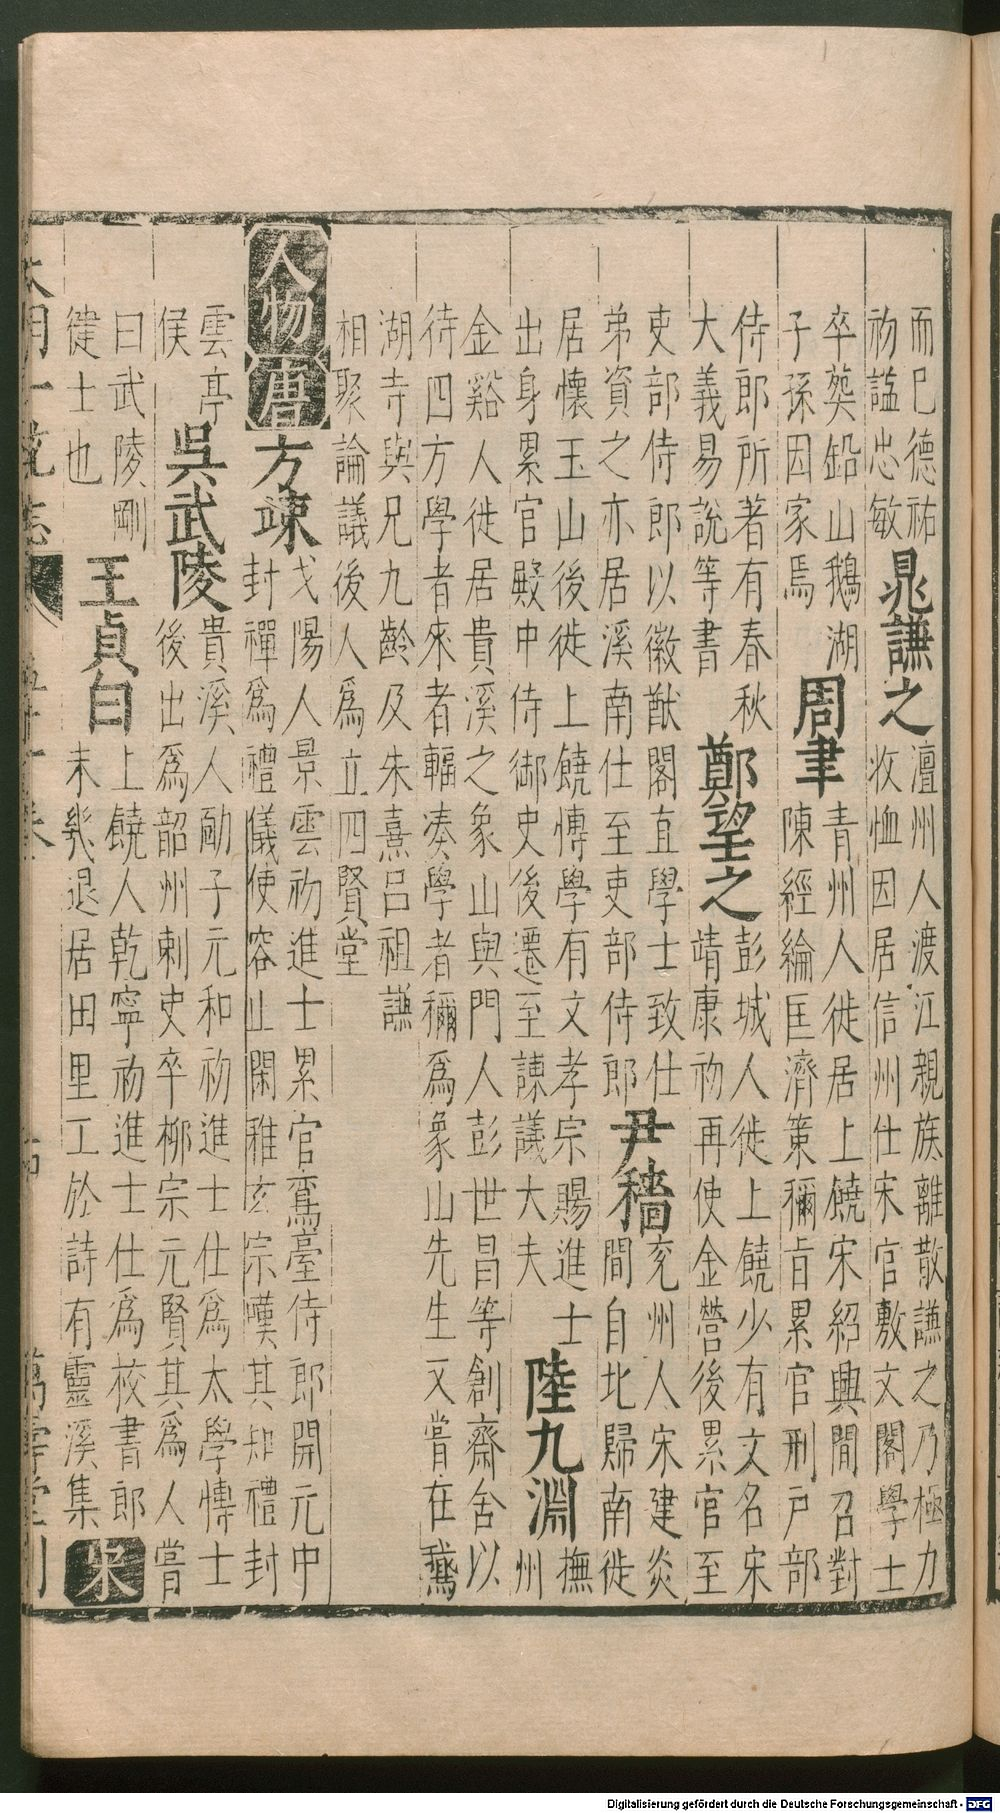 而已德祐
初諡忠敏
晁謙之
澶州人渡江親族離散謙之乃極力
收恤因居信州仕宋官敷文閣學士
卒葬鉛山鵝湖
子孫因家焉
周聿
青州人徙居上饒宋紹興間召對
陳經綸匡濟策稱旨累官刑戶部
侍郎所著有春秋
大義易說等書
鄭望之
彭城人徙上饒少有文名宋
靖康初再使金營後累官至
吏部侍郎以徽猷閣直學士致仕
弟資之亦居溪南仕至吏部侍郎
尹穡
兗州人宋建炎
間自北歸南徙
居懷玉山後徙上饒愽學有文孝宗賜進士
出身累官殿中侍御史後遷至諫議大夫
陸九淵
撫州
金谿人徙居貴溪之象山與門人彭世昌等創齋舍以
待四方學者來者輻湊學者稱爲象山先生又嘗在鵞
湖寺與兄九齡及朱熹呂祖謙
相聚論議後人爲立四賢堂
人物
唐
方竦
弋陽人景雲初進士累官鸞臺侍郎開元中
封禪爲禮儀使容止閑雅玄宗嘆其知禮封
雲亭
侯
吳武陵
貴溪人勔子元和初進士仕爲太學愽士
後出爲韶州刺史卒柳宗元賢其爲人嘗
曰武陵剛
徤士也
王貞白
上饒人乾寧初進士仕爲校書郎
未幾退居田里工於詩有靈溪集
宋
大明一統志
萬壽堂刊
Digitalisierung gefördert durch die Deutsche Forschungsgemeinschaft - DFG